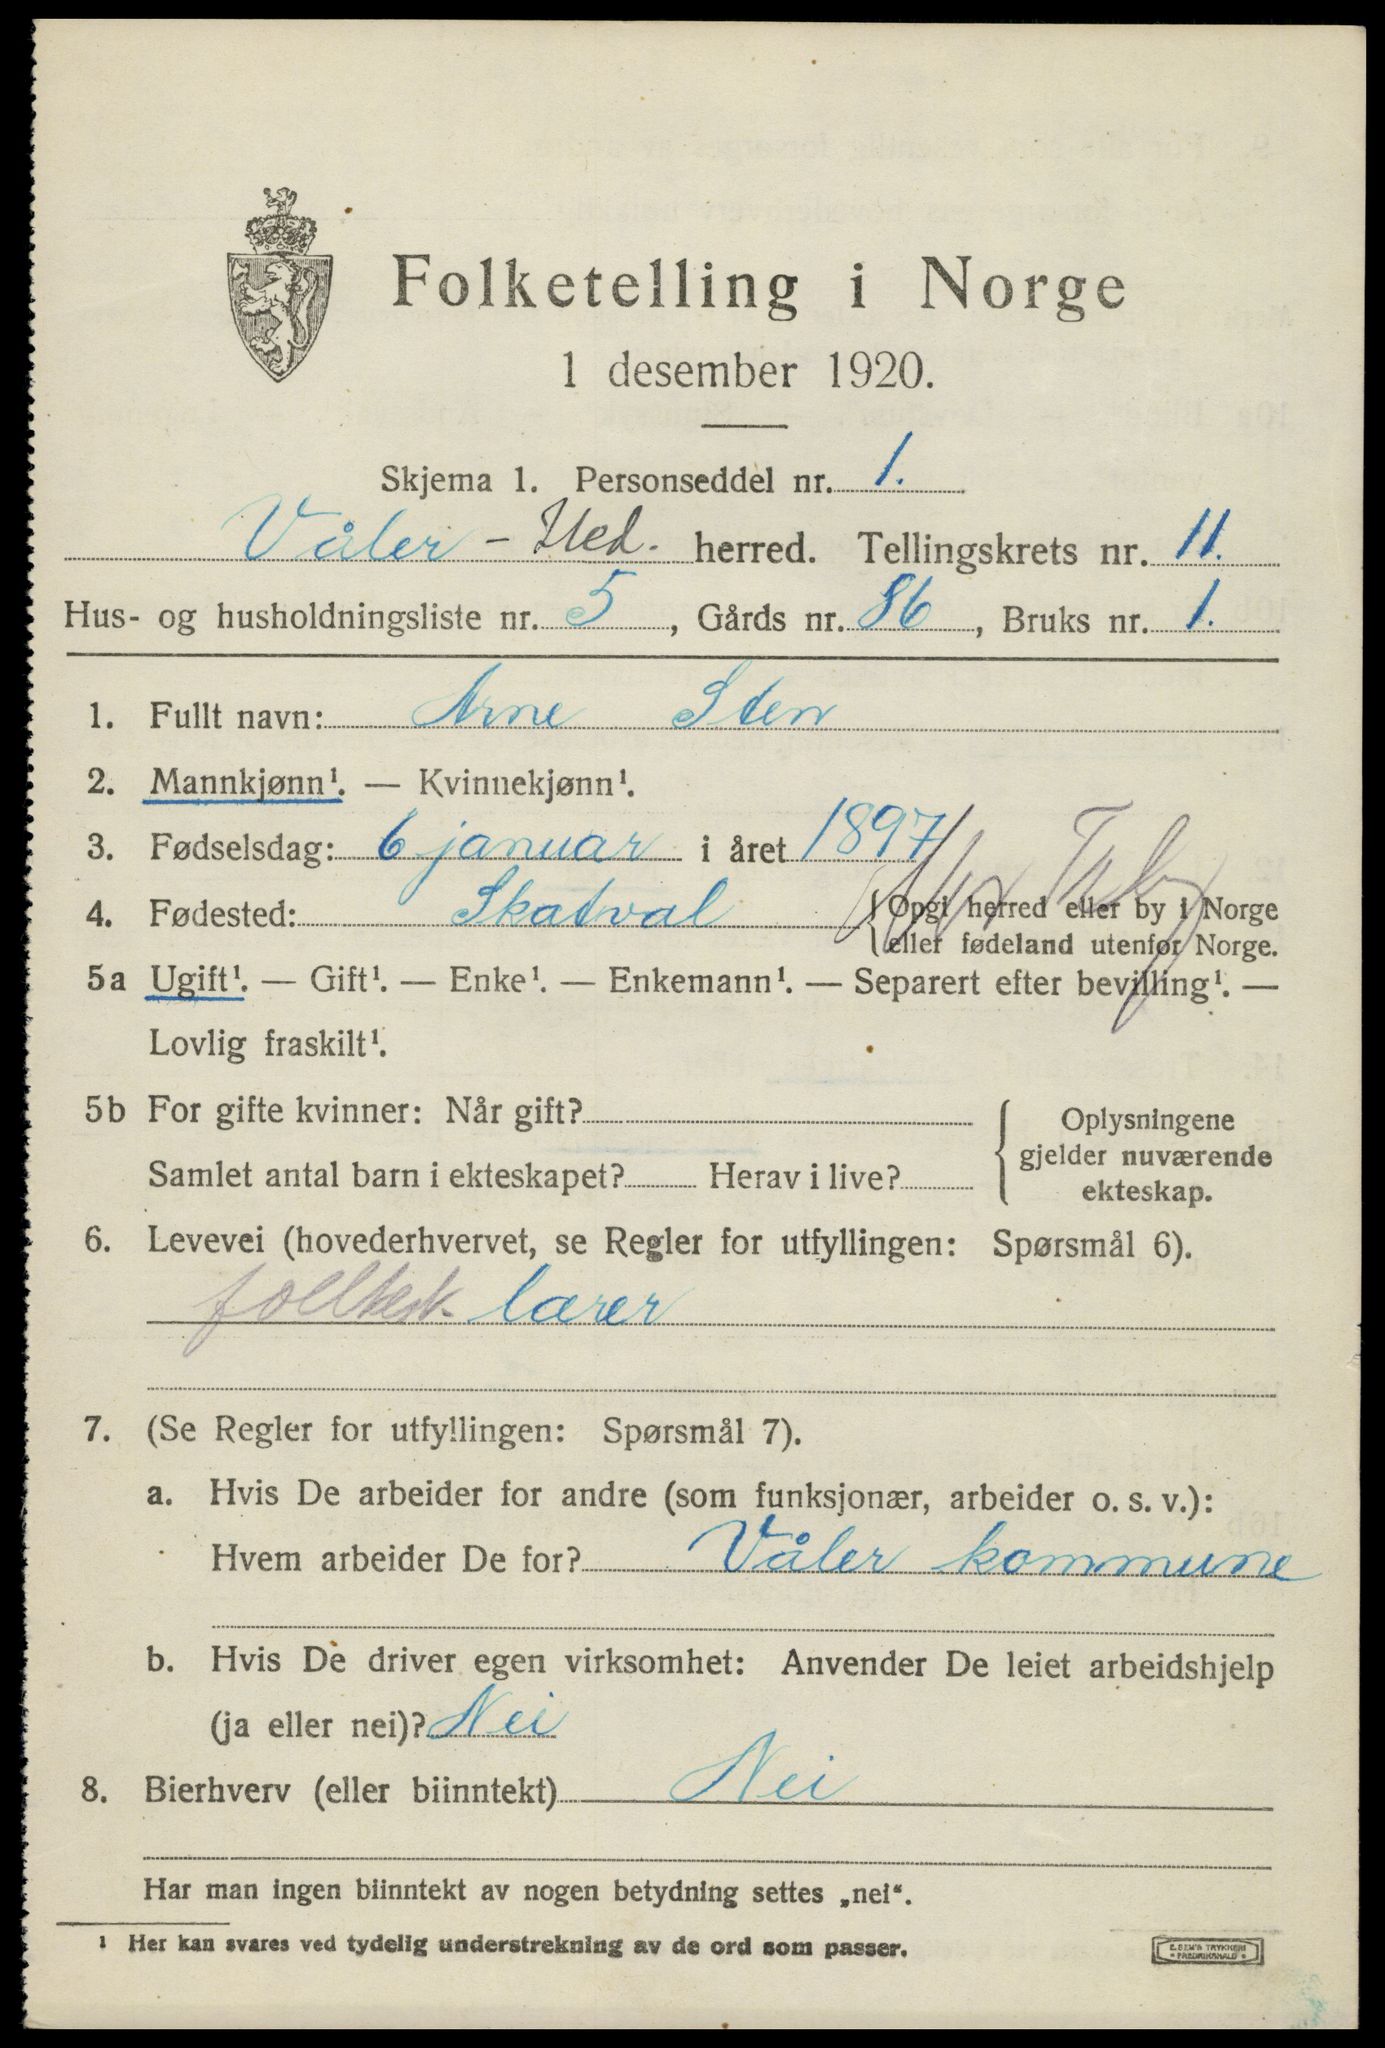 Folketelling i Norge
1 desember 1920.
Skjema 1. Personseddel nr. 1.
Våler - Hed. herred. Tellingskrets nr. 11.
Hus- og husholdningsliste nr. 5, Gårds nr. 86, Bruks nr. 1.
1. Fullt navn: Arne Sten
2. Mannkjønn¹. — Kvinnekjønn¹.
3. Fødselsdag: 6 januar i året 1897
4. Fødested: Skatval { Opgi herred eller by i Norge
eller fødeland utenfor Norge.
5a Ugift¹. — Gift¹. — Enke¹. — Enkemann¹. — Separert efter bevilling¹. —
Lovlig fraskilt¹.
5b For gifte kvinner: Når gift?
Samlet antal barn i ekteskapet? Herav i live?
{ Oplysningene
gjelder nuværende
ekteskap.
6. Levevei (hovederhvervet, se Regler for utfyllingen: Spørsmål 6).
lærer
7. (Se Regler for utfyllingen: Spørsmål 7).
a. Hvis De arbeider for andre (som funksjonær, arbeider o. s. v.):
Hvem arbeider De for? Våler kommune
b. Hvis De driver egen virksomhet: Anvender De leiet arbeidshjelp
(ja eller nei)? Nei
8. Bierhverv (eller biinntekt) Nei
Har man ingen biinntekt av nogen betydning settes „nei“.
¹ Her kan svares ved tydelig understrekning av de ord som passer.
E. SEM'S TRYKKERI
FREDRIKSHALD